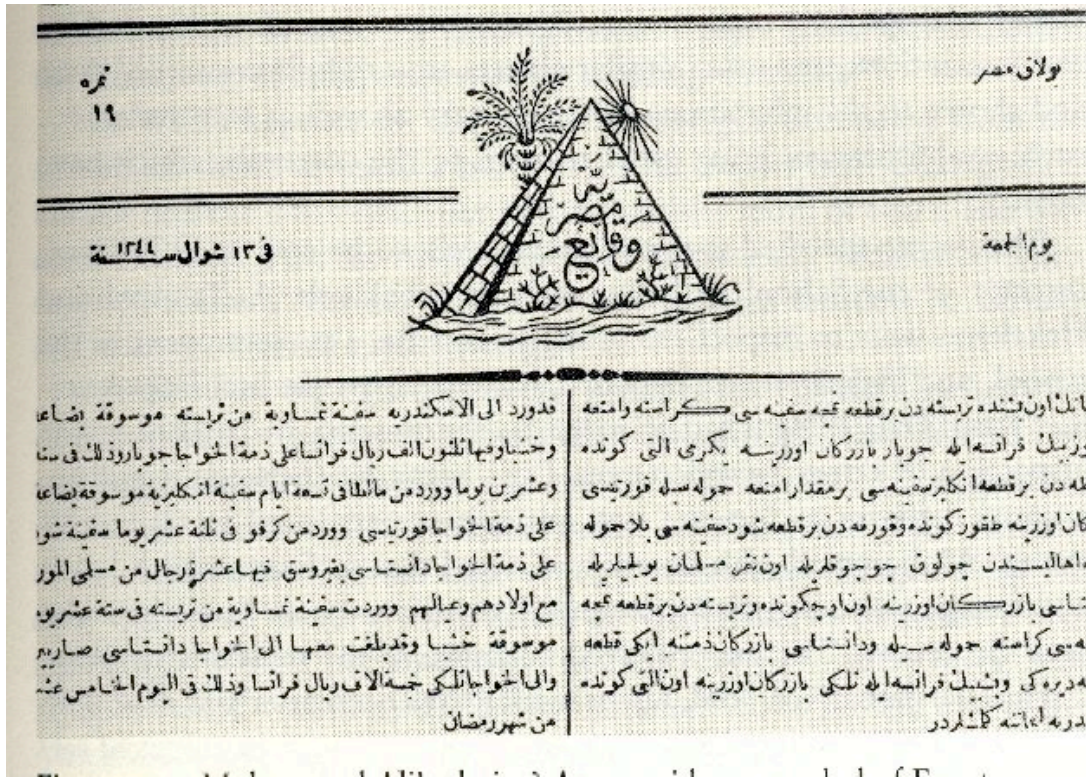 بولاق مصر
نمره
١٩
وقائع مصرية
يوم الجمعة
فى ١٣ شوال سنة ١٢٤٤
اون بشنده تريسته دن برقطعه نمچه سفينه سى كراسته وامتعه
فرانسه ايله جوبار بازركان اوزرينه يكرمى التى كونده
دن برقطعه انكليز سفينه سى برمقدار امتعه حموله سيله قورتيسى
اوزرينه طقوز كونده وقورفه دن برقطعه شود سفينه سى بلا حموله
اهاليسندن چولوق چوجوقلريله اون نفر مسلمان يولجيلريله
بازركان اوزرينه اون اوچ كونده وتريسته دن برقطعه نمچه
سى كراسته حموله سيله ودانستاسى بازركان ذمتنه ايكى قطعه
ديرك وبش بيك فرانسه ايله تلكى بازركان اوزرينه اون التى كونده
كلمشلردر
قدورد الى الاسكندريه سفينة نمساوية من تريسته موسوقة بضاعة
وخشبا وفيها ثلثون الف ريال فرانسا على ذمة الخواجا جوبار وذلك فى ستة
وعشرين يوما وورد من مالطا فى تسعة ايام سفينة انكليزية موسوقة بضاعة
على ذمة الخواجا قورتيسى وورد من كرفو فى ثلثة عشر يوما سفينة شود
على ذمة الخواجا دانستاسى بغير وسق فيها عشرة رجال من مسلمى المورة
مع اولادهم وعيالهم ووردت سفينة نمساوية من تريسته فى ستة عشر يوما
موسوقة خشبا وقد بلغت معها الى الخواجا دانستاسى صاريين
والى الخواجا تلكى خمسة الاف ريال فرانسا وذلك فى اليوم الخامس عشر
من شهر رمضان